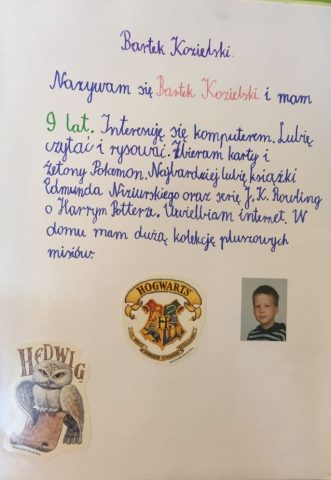 Bartek Kozielski.
Nazywam się Bartek Kozielski i mam
9 lat. Interesuję się komputerem. Lubię
czytać i rysować. Zbieram karty i
żetony Pokemon. Najbardziej lubię książki
Edmunda Niziurskiego oraz serię J. K. Rowling
o Harrym Potterze. Uwielbiam internet. W
domu mam dużą kolekcję pluszowych
misiów.
HOGWARTS
HEDWIG